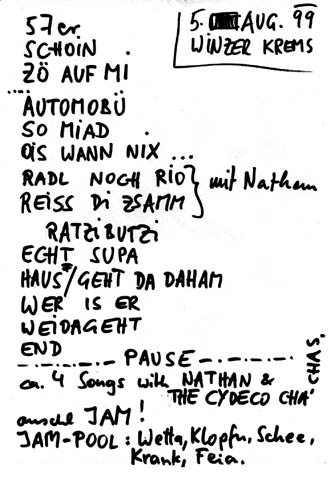 57er
5. AUG. 99
WINZER KREMS
SCHOIN
ZÖ AUF MI
AUTOMOBÜ
SO MIAD
OIS WANN NIX ...
RADL NOCH RIO
REISS DI ZSAMM
mit Nathan
RATZIBUTZI
ECHT SUPA
HAUS/GEHT DA DAHAM
WER IS ER
WEIDAGEHT
END
PAUSE
ca. 4 Songs with NATHAN &
THE CYDECO CHA' CHAS.
anschl JAM!
JAM-POOL: Wetta, Klopfn, Schee,
Krank, Feia.